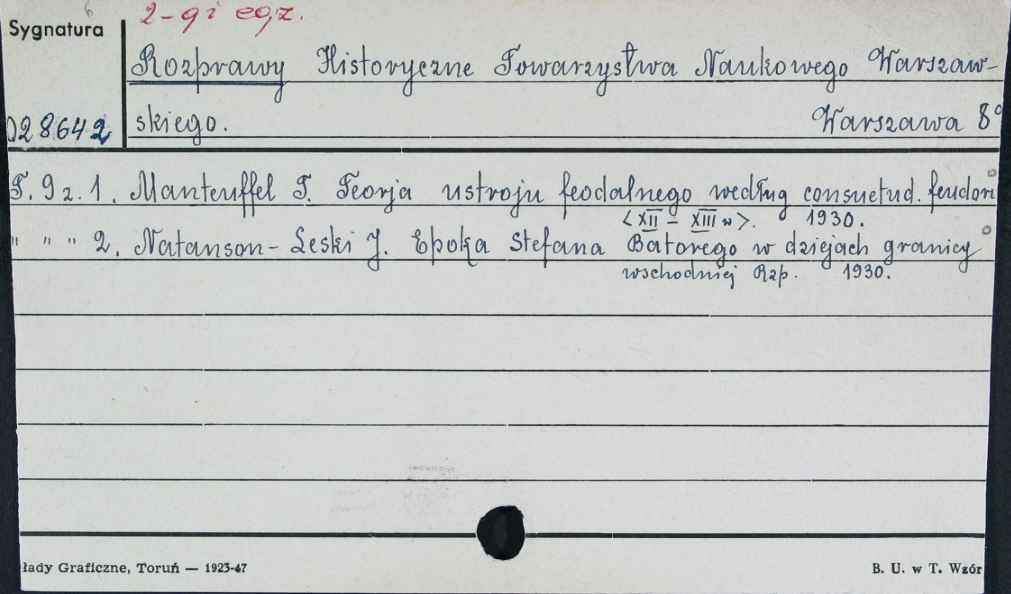 6
2-gi egz.
Sygnatura
Rozprawy Historyczne Towarzystwa Naukowego Warszaw-
028642 skiego. Warszawa 8°
T. 9 z. 1. Manteuffel T. Teorja ustroju feodalnego według consuetud. feudor
<XII - XIII w>. 1930.
" " " 2. Natanson-Leski J. Epoka Stefana Batorego w dziejach granicy
wschodniej Rzp. 1930.
łady Graficzne, Toruń — 1923-47 B. U. w T. Wzór